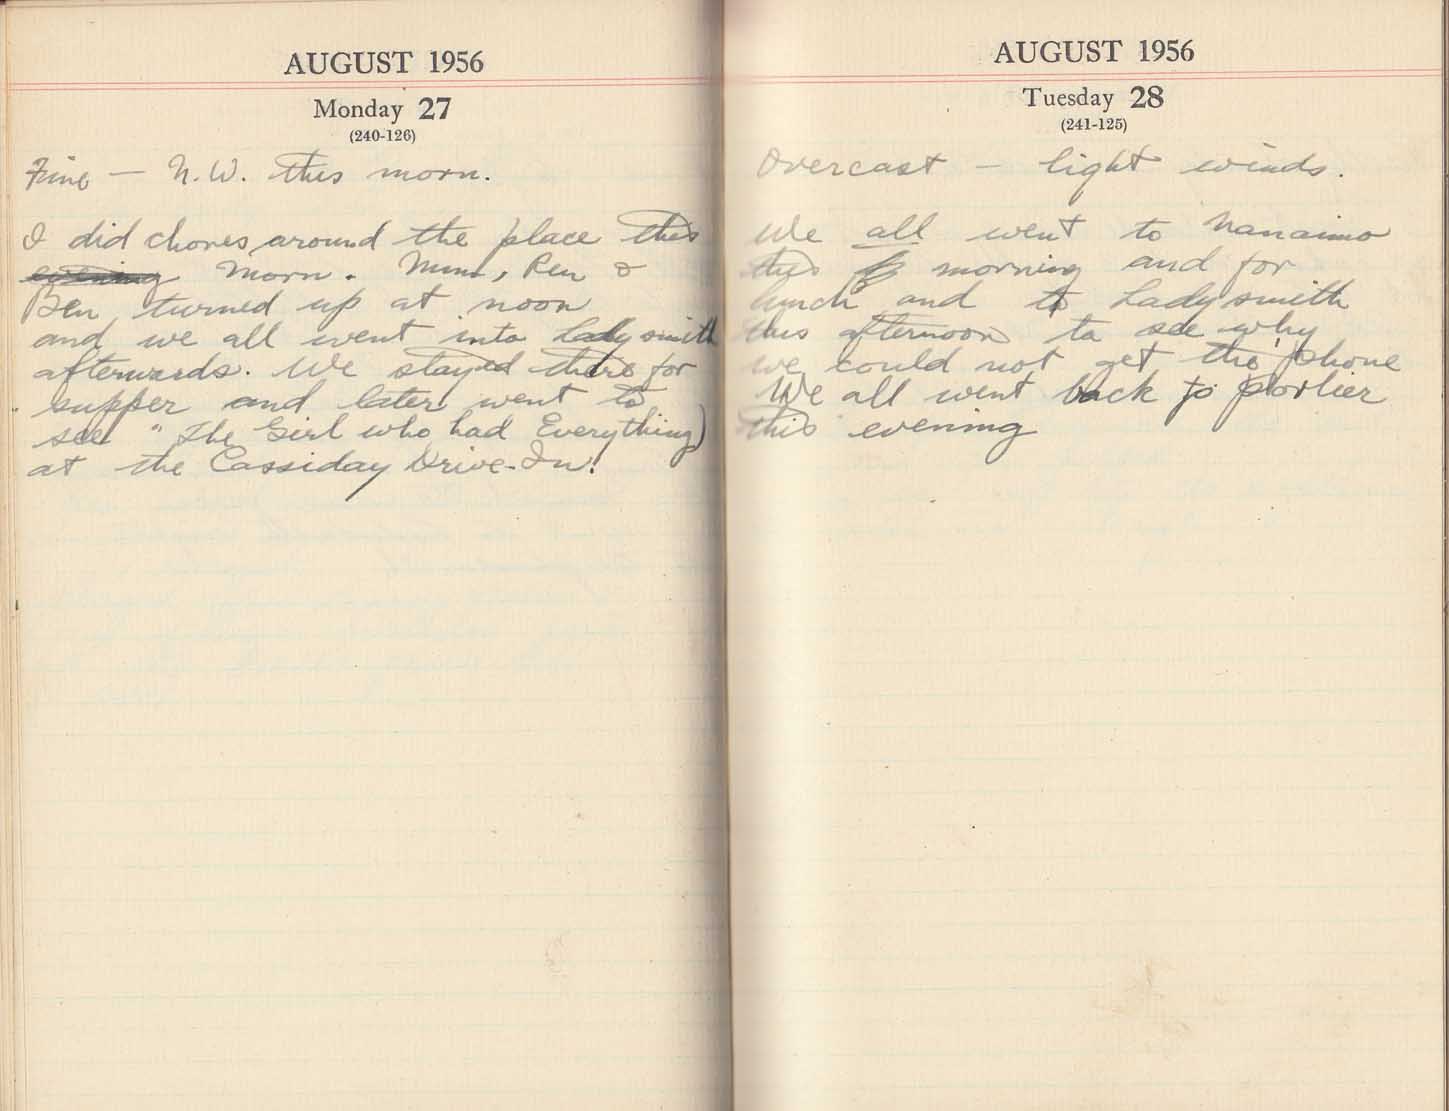 AUGUST 1956
Monday 27
(240-126)
Fine — N.W. this morn.
I did chores around the place this
evening morn. Mum, Pen &
Ben turned up at noon
and we all went into Ladysmith
afterwards. We stayed there for
supper and later went to
see "The Girl who had Everything)
at the Cassiday Drive-In.
AUGUST 1956
Tuesday 28
(241-125)
Overcast — light winds.
We all went to Nanaimo
this morning and for
lunch and to Ladysmith
this afternoon to see why
we could not get the phone
We all went back to Porlier
this evening